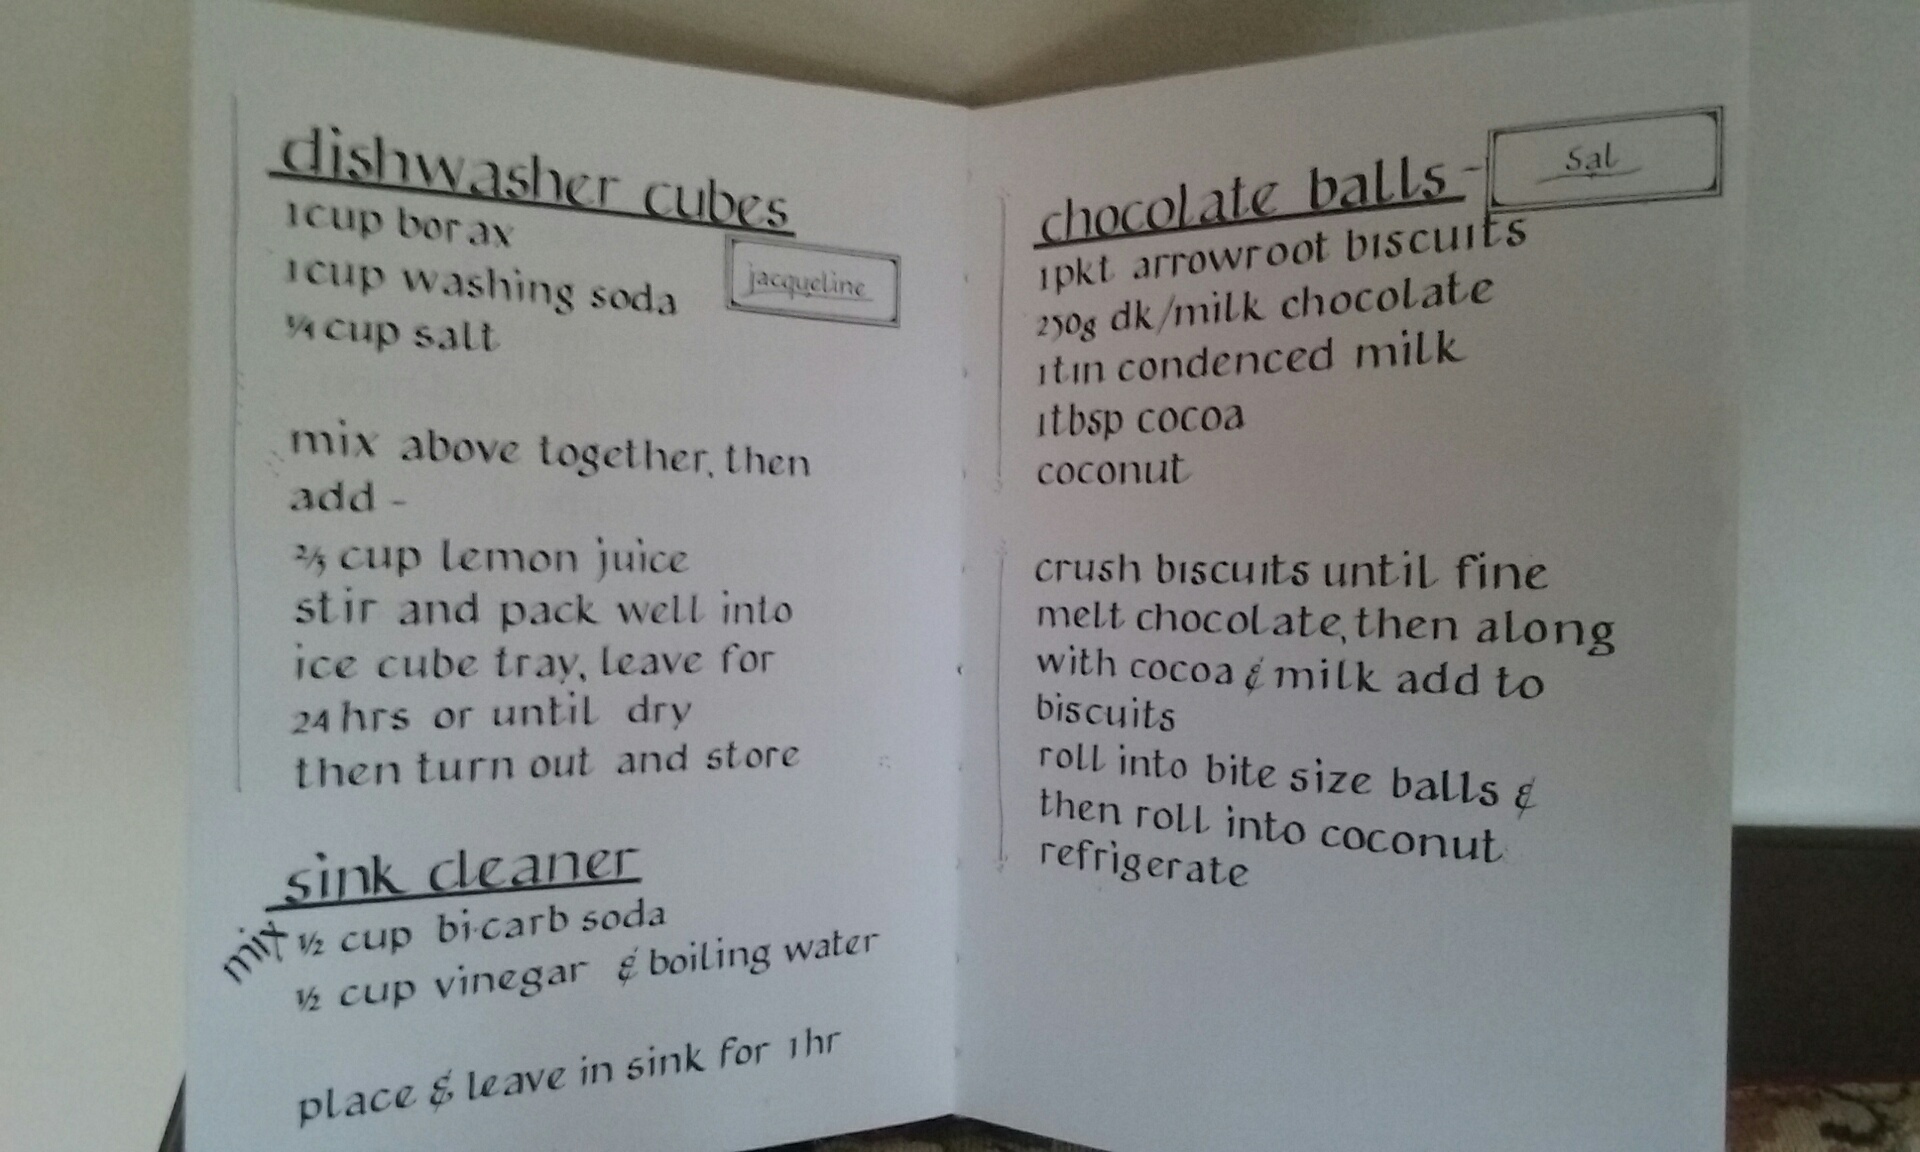 dishwasher cubes
1cup borax
1cup washing soda
jacqueline
¼ cup salt
mix above together, then
add -
⅔ cup lemon juice
stir and pack well into
ice cube tray, leave for
24 hrs or until dry
then turn out and store
sink cleaner
mix ½ cup bi-carb soda
½ cup vinegar & boiling water
place & leave in sink for 1hr
chocolate balls - Sal
1pkt arrowroot biscuits
250g dk/milk chocolate
1tin condenced milk
1tbsp cocoa
coconut
crush biscuits until fine
melt chocolate, then along
with cocoa & milk add to
biscuits
roll into bite size balls &
then roll into coconut
refrigerate